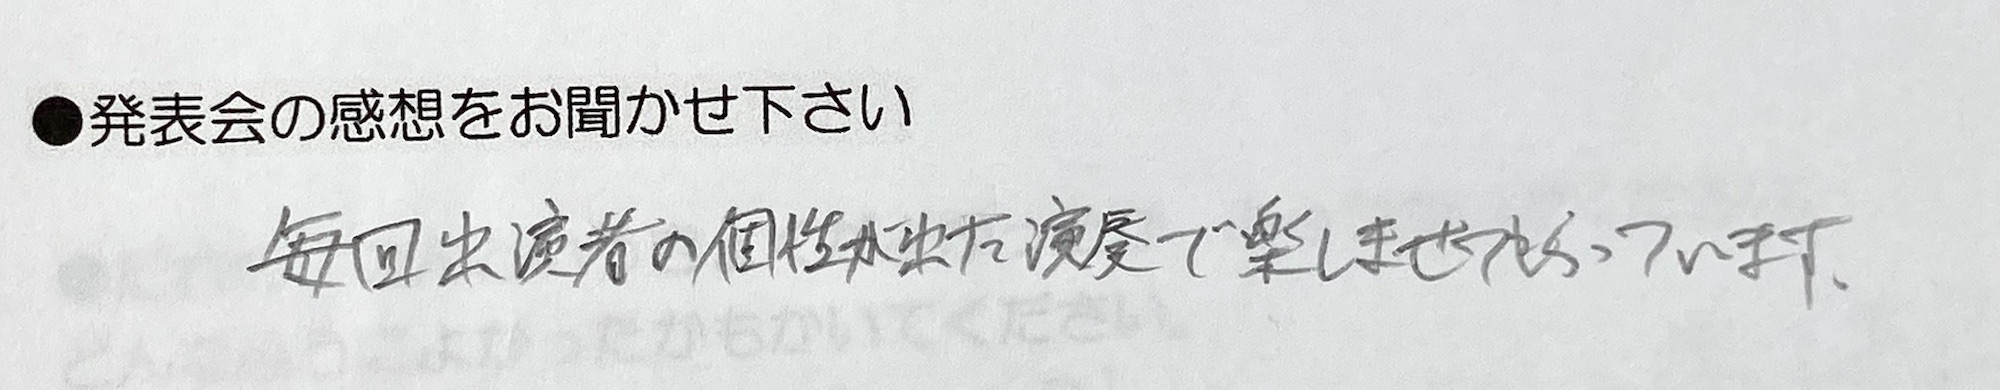 ●発表会の感想をお聞かせ下さい
毎回出演者の個性が出た演奏で楽しませてもらっています。